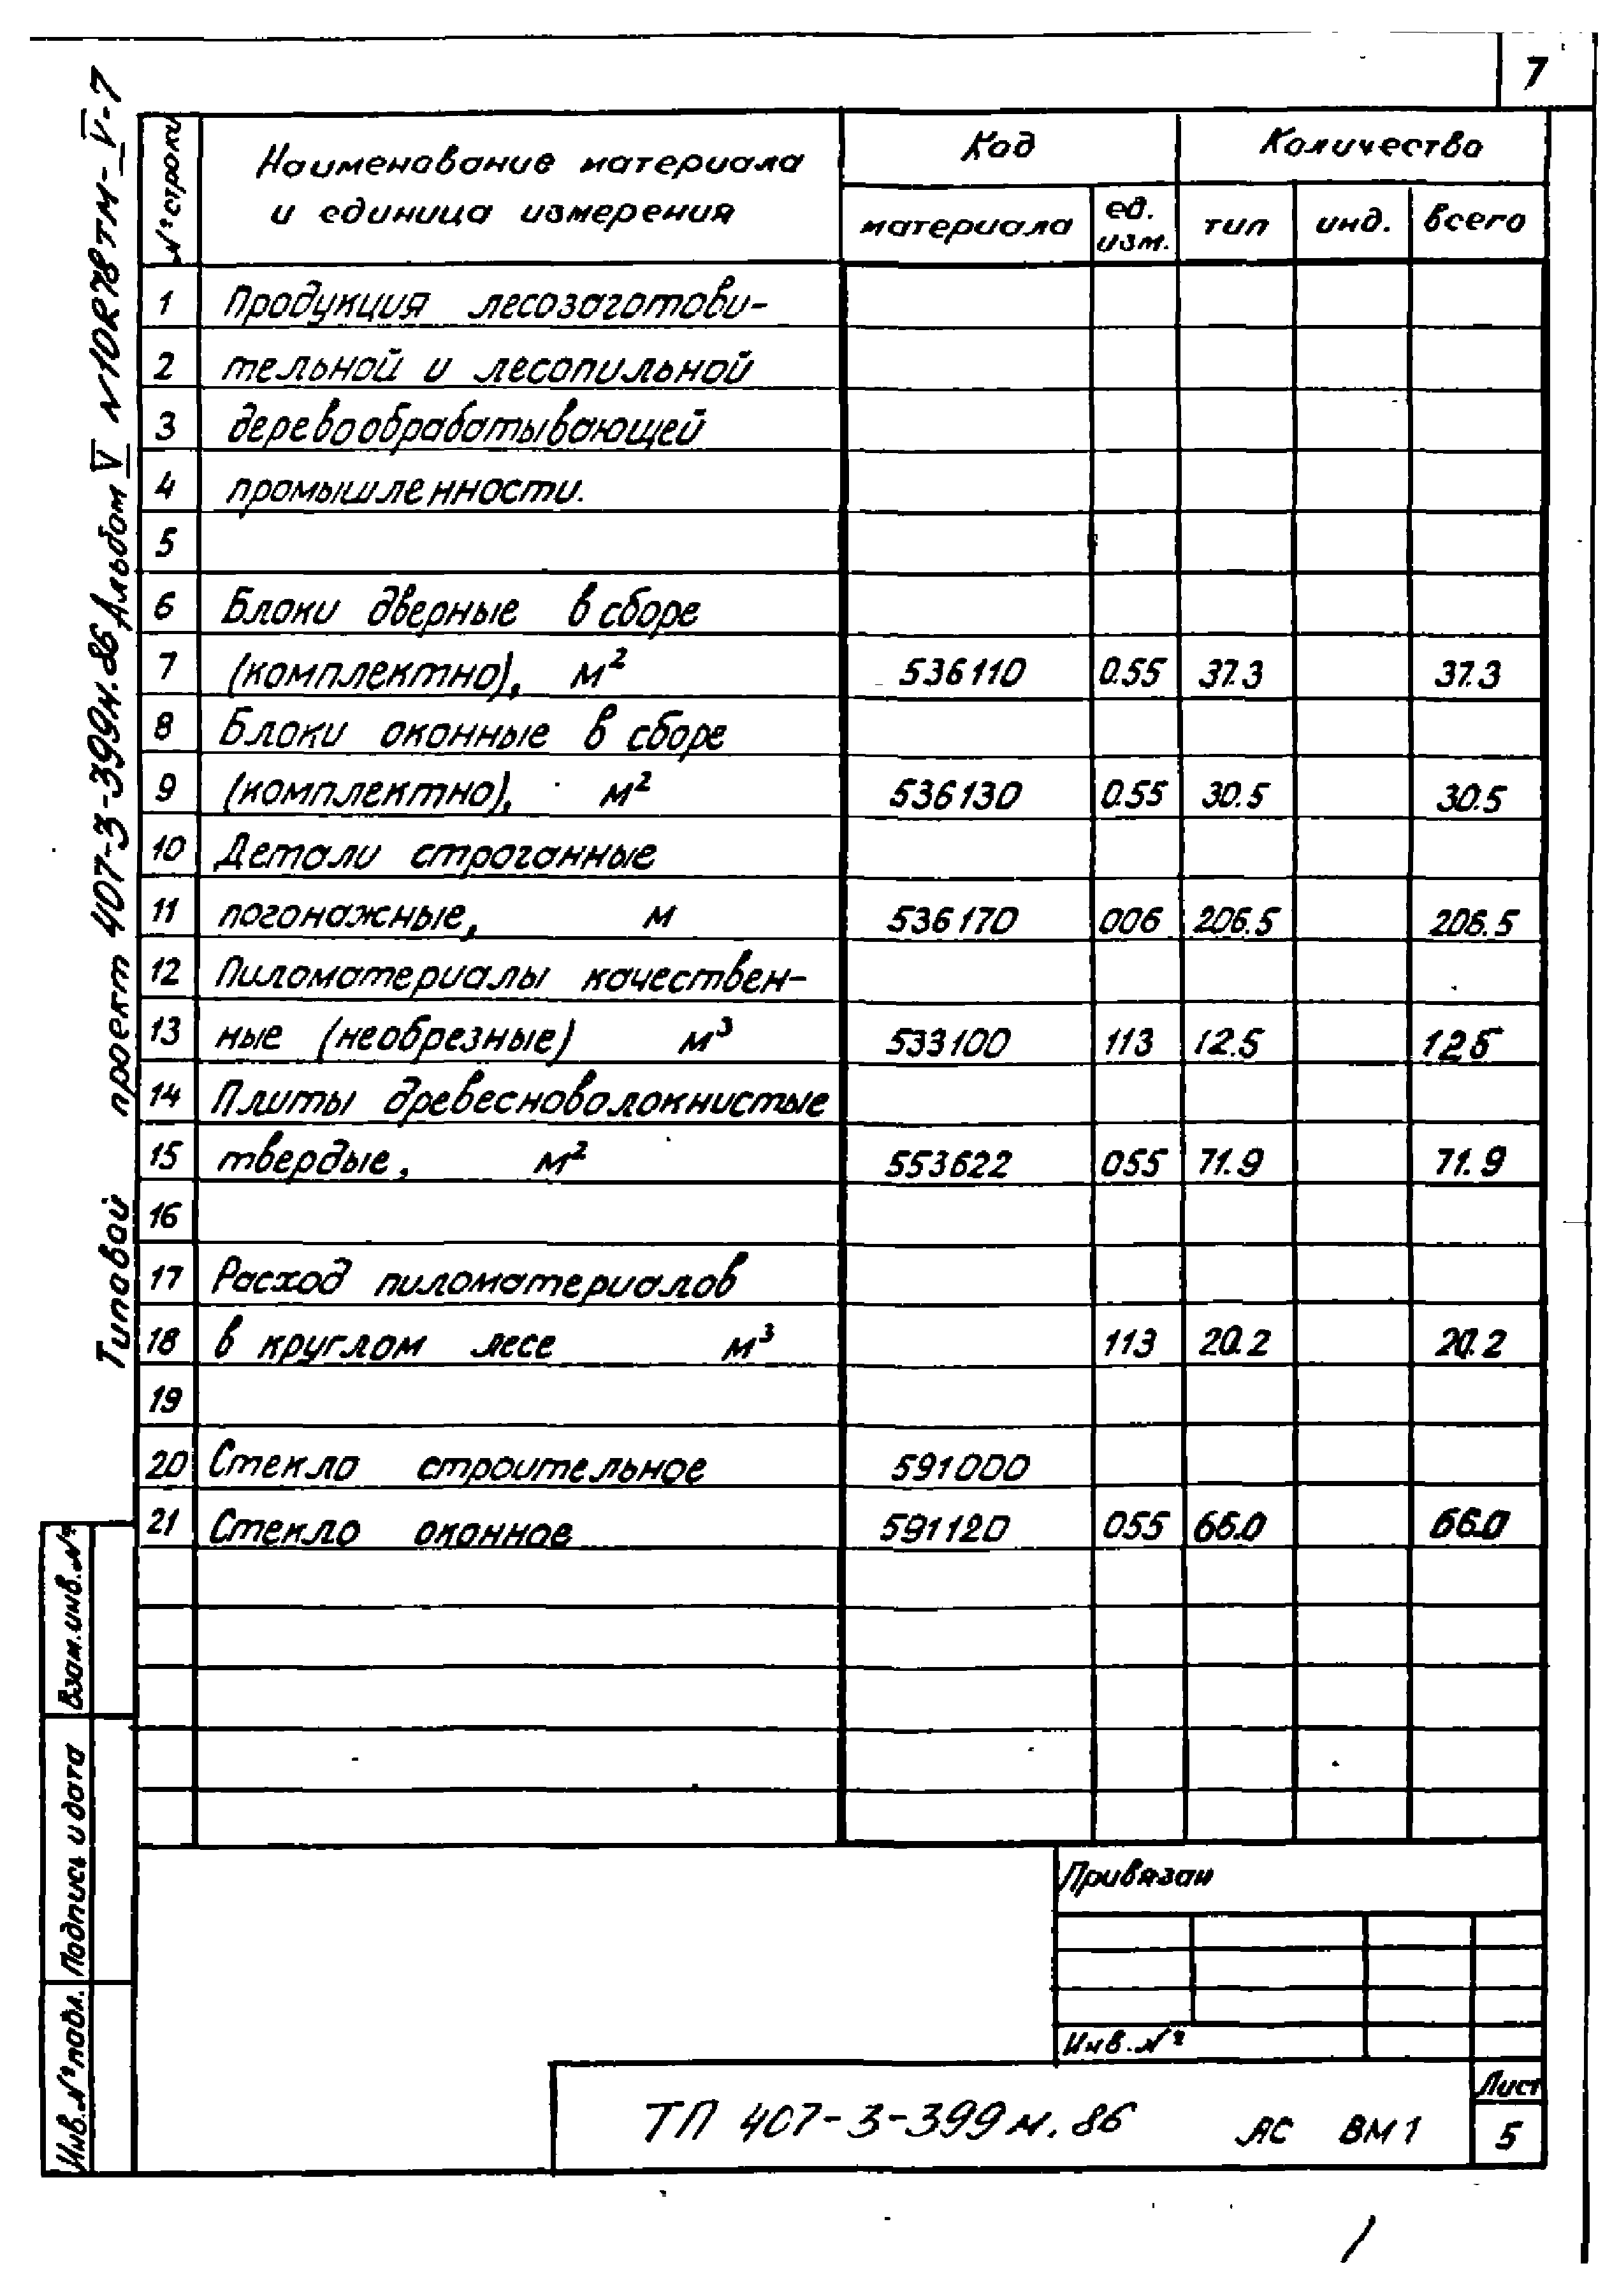 7
Типовой проект 407-3-399м.86 Альбом V
№ строки
Наименование материала
и единица измерения
Код
Количество
материала
ед.
изм.
тип
инд.
всего
1 Продукция лесозаготови-
2 тельной и лесопильной
3 деревообрабатывающей
4 промышленности.
5
6 Блоки дверные в сборе
7 (комплектно), м² 536110 0.55 37.3 37.3
8 Блоки оконные в сборе
9 (комплектно), м² 536130 0.55 30.5 30.5
10 Детали строганные
11 погонажные, м 536170 006 206.5 206.5
12 Пиломатериалы качествен-
13 ные (необрезные) м³ 533100 113 12.5 12.5
14 Плиты древесноволокнистые
15 твердые, м² 553622 055 71.9 71.9
16
17 Расход пиломатериалов
18 в круглом лесе м³ 113 20.2 20.2
19
20 Стекло строительное 591000
21 Стекло оконное 591120 055 66.0 66.0
Взам.инв.№
Подпись и дата
Инв.№ подл.
Привязан
Инв.№
ТП 407-3-399м.86 АС ВМ1
Лист
5